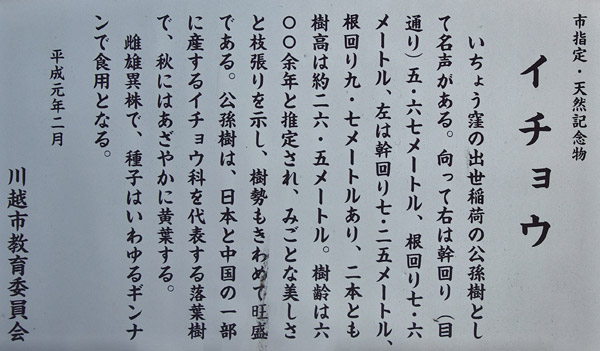 市指定・天然記念物
イチョウ
いちょう窪の出世稲荷の公孫樹とし
て名声がある。向って右は幹回り（目
通り）五・六七メートル、根回り七・六
メートル、左は幹回り七・二五メートル、
根回り九・七メートルあり、二本とも
樹高は約二六・五メートル。樹齢は六
〇〇余年と推定され、みごとな美しさ
と枝張りを示し、樹勢もきわめて旺盛
である。公孫樹は、日本と中国の一部
に産するイチョウ科を代表する落葉樹
で、秋にはあざやかに黄葉する。
雌雄異株で、種子はいわゆるギンナ
ンで食用となる。
平成元年二月
川越市教育委員会